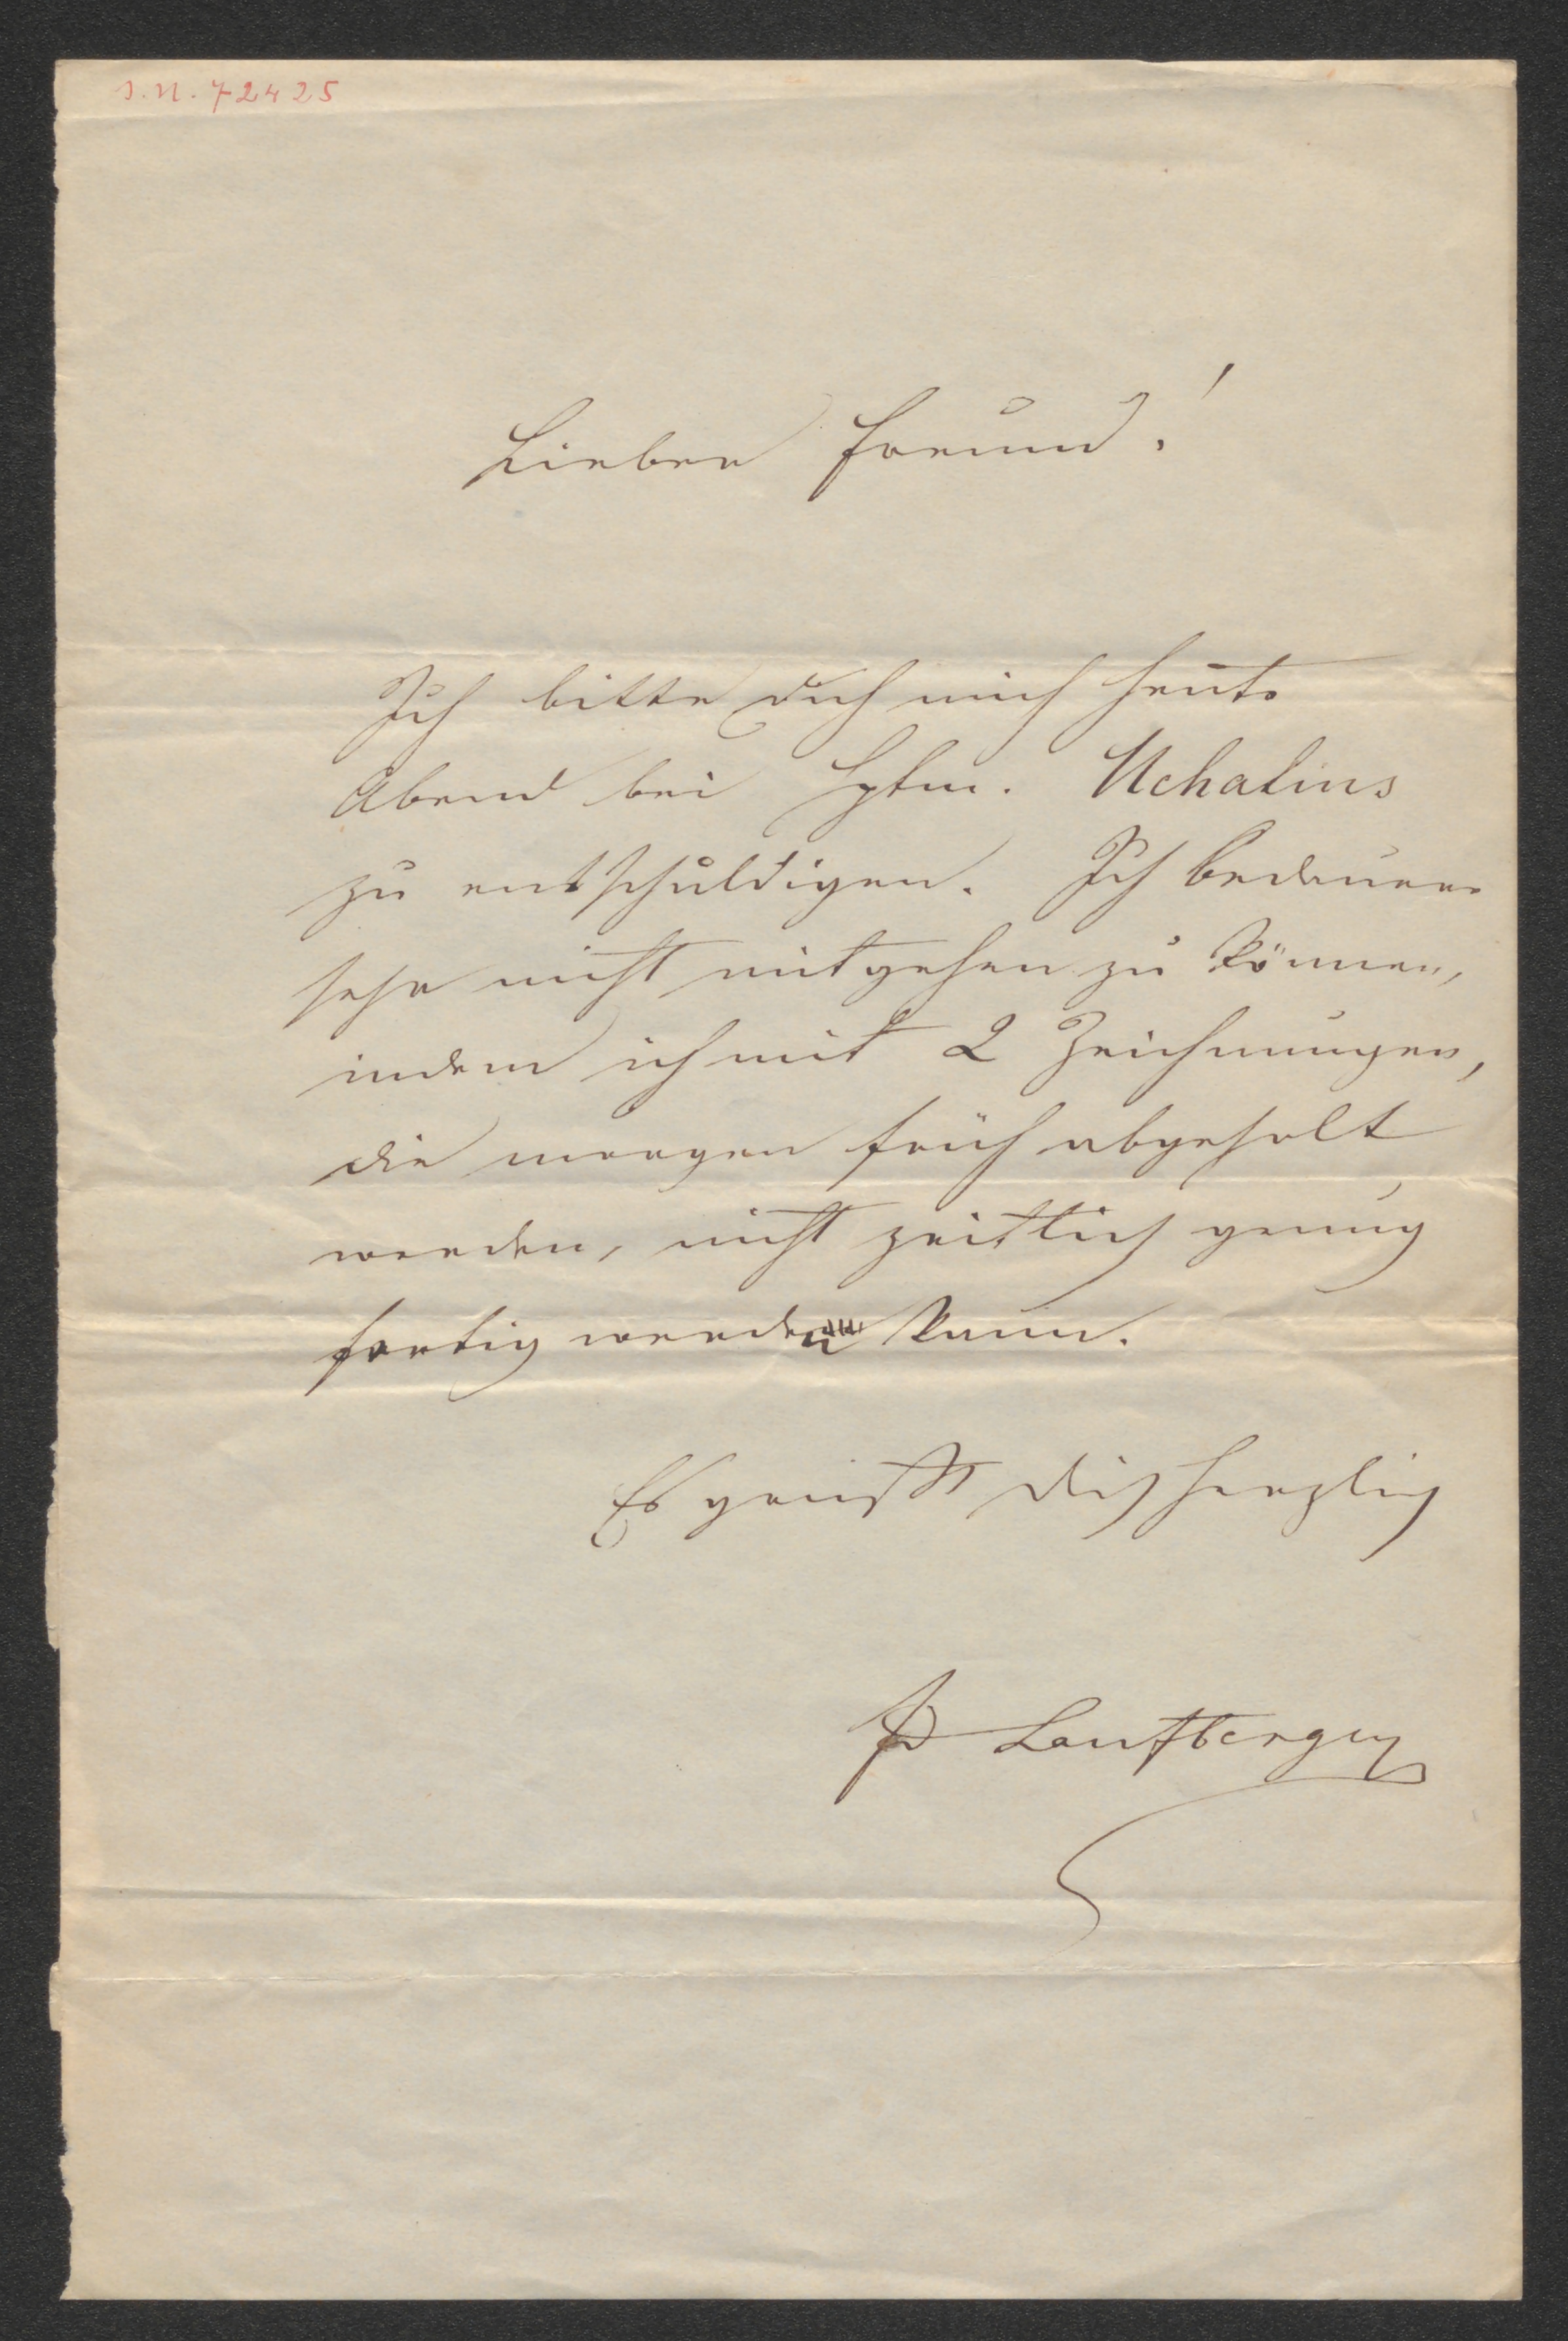 J.N. 72425
Lieber Freund!
Ich bitte dich mich heute
Abend bei Hptm. Uchatius
zu entschuldigen. Ich bedauere
sehr nicht mitgehen zu können,
indem ich mit 2 Zeichnungen,
die morgen früh abgeholt
werden, nicht zeitlich genug
fertig werden kann.
Es grüßt dich herzlich
Fd Laufberger